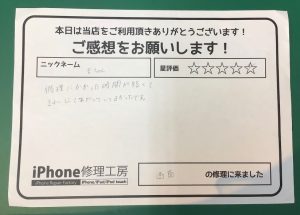 本日は当店をご利用頂きありがとうございます！
ご感想をお願いします！
ニックネーム
星評価 ☆☆☆☆☆
修理にかかった時間が短くて
iPhone修理工房
iPhone Repair Factory iPhone/iPad/iPod touch
画面 の修理に来ました